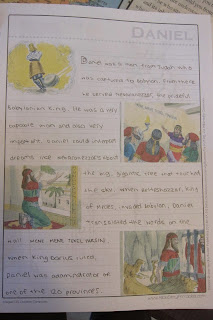 DANIEL
Daniel was a man from Judah who
was captured to Babylon. From there
he served Nebuchadnezzar, the prideful
Babylonian king. He was a very
capable man and was very
important. Daniel could interpret
dreams like Nebuchadnezzar's about
the big, gigantic tree that touched
the sky. When Belteshezzar, king
of Medes, invaded Babylon, Daniel
translated the words on the
wall MENE MENE TEKEL PARSIN.
When King Darius ruled,
Daniel was administrator of
one of the 120 provinces.